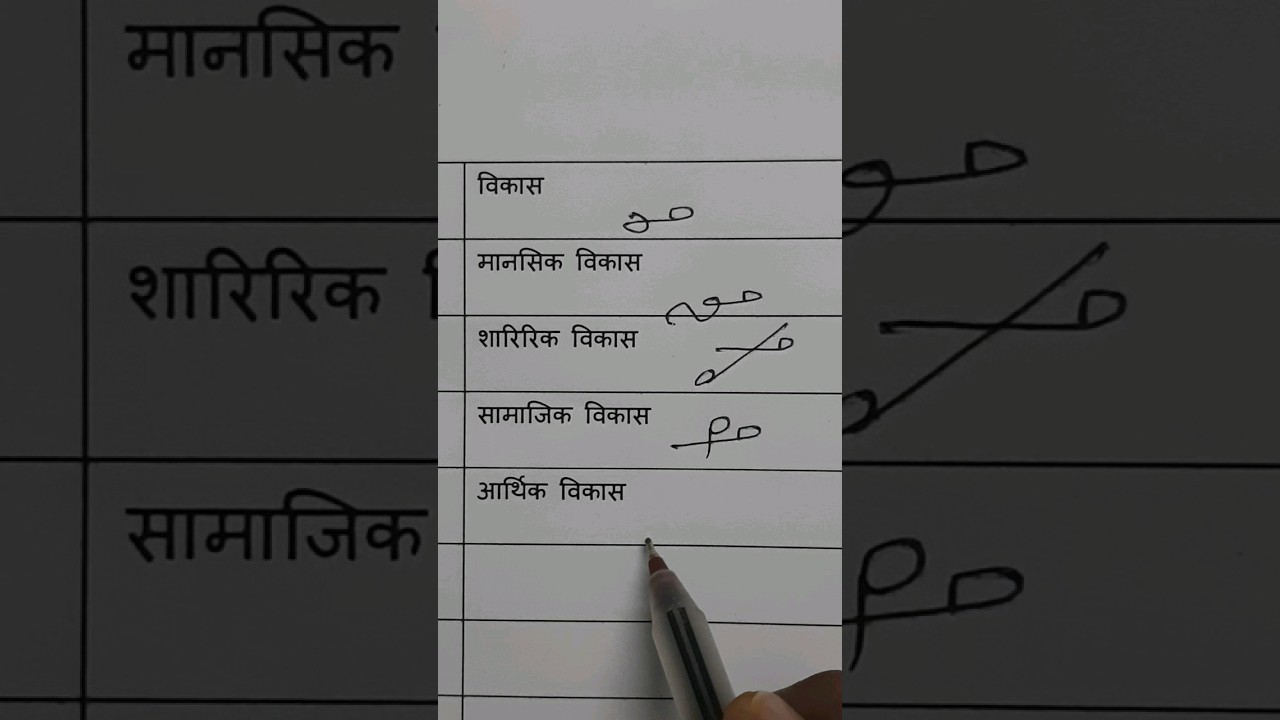 विकास
मानसिक विकास
शारिरिक विकास
सामाजिक विकास
आर्थिक विकास
मानसिक
शारिरिक
सामाजिक